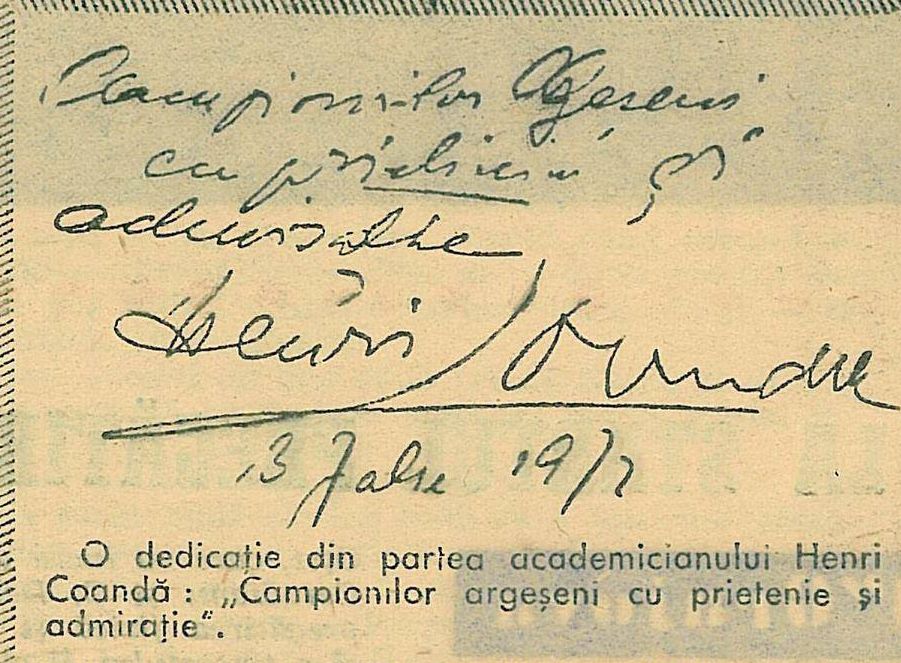 Campionilor Argeseni
cu prietenie și
admiratie
Henri Coanda
13 Iulie 1972
O dedicație din partea academicianului Henri
Coandă : „Campionilor argeșeni cu prietenie și
admirație“.